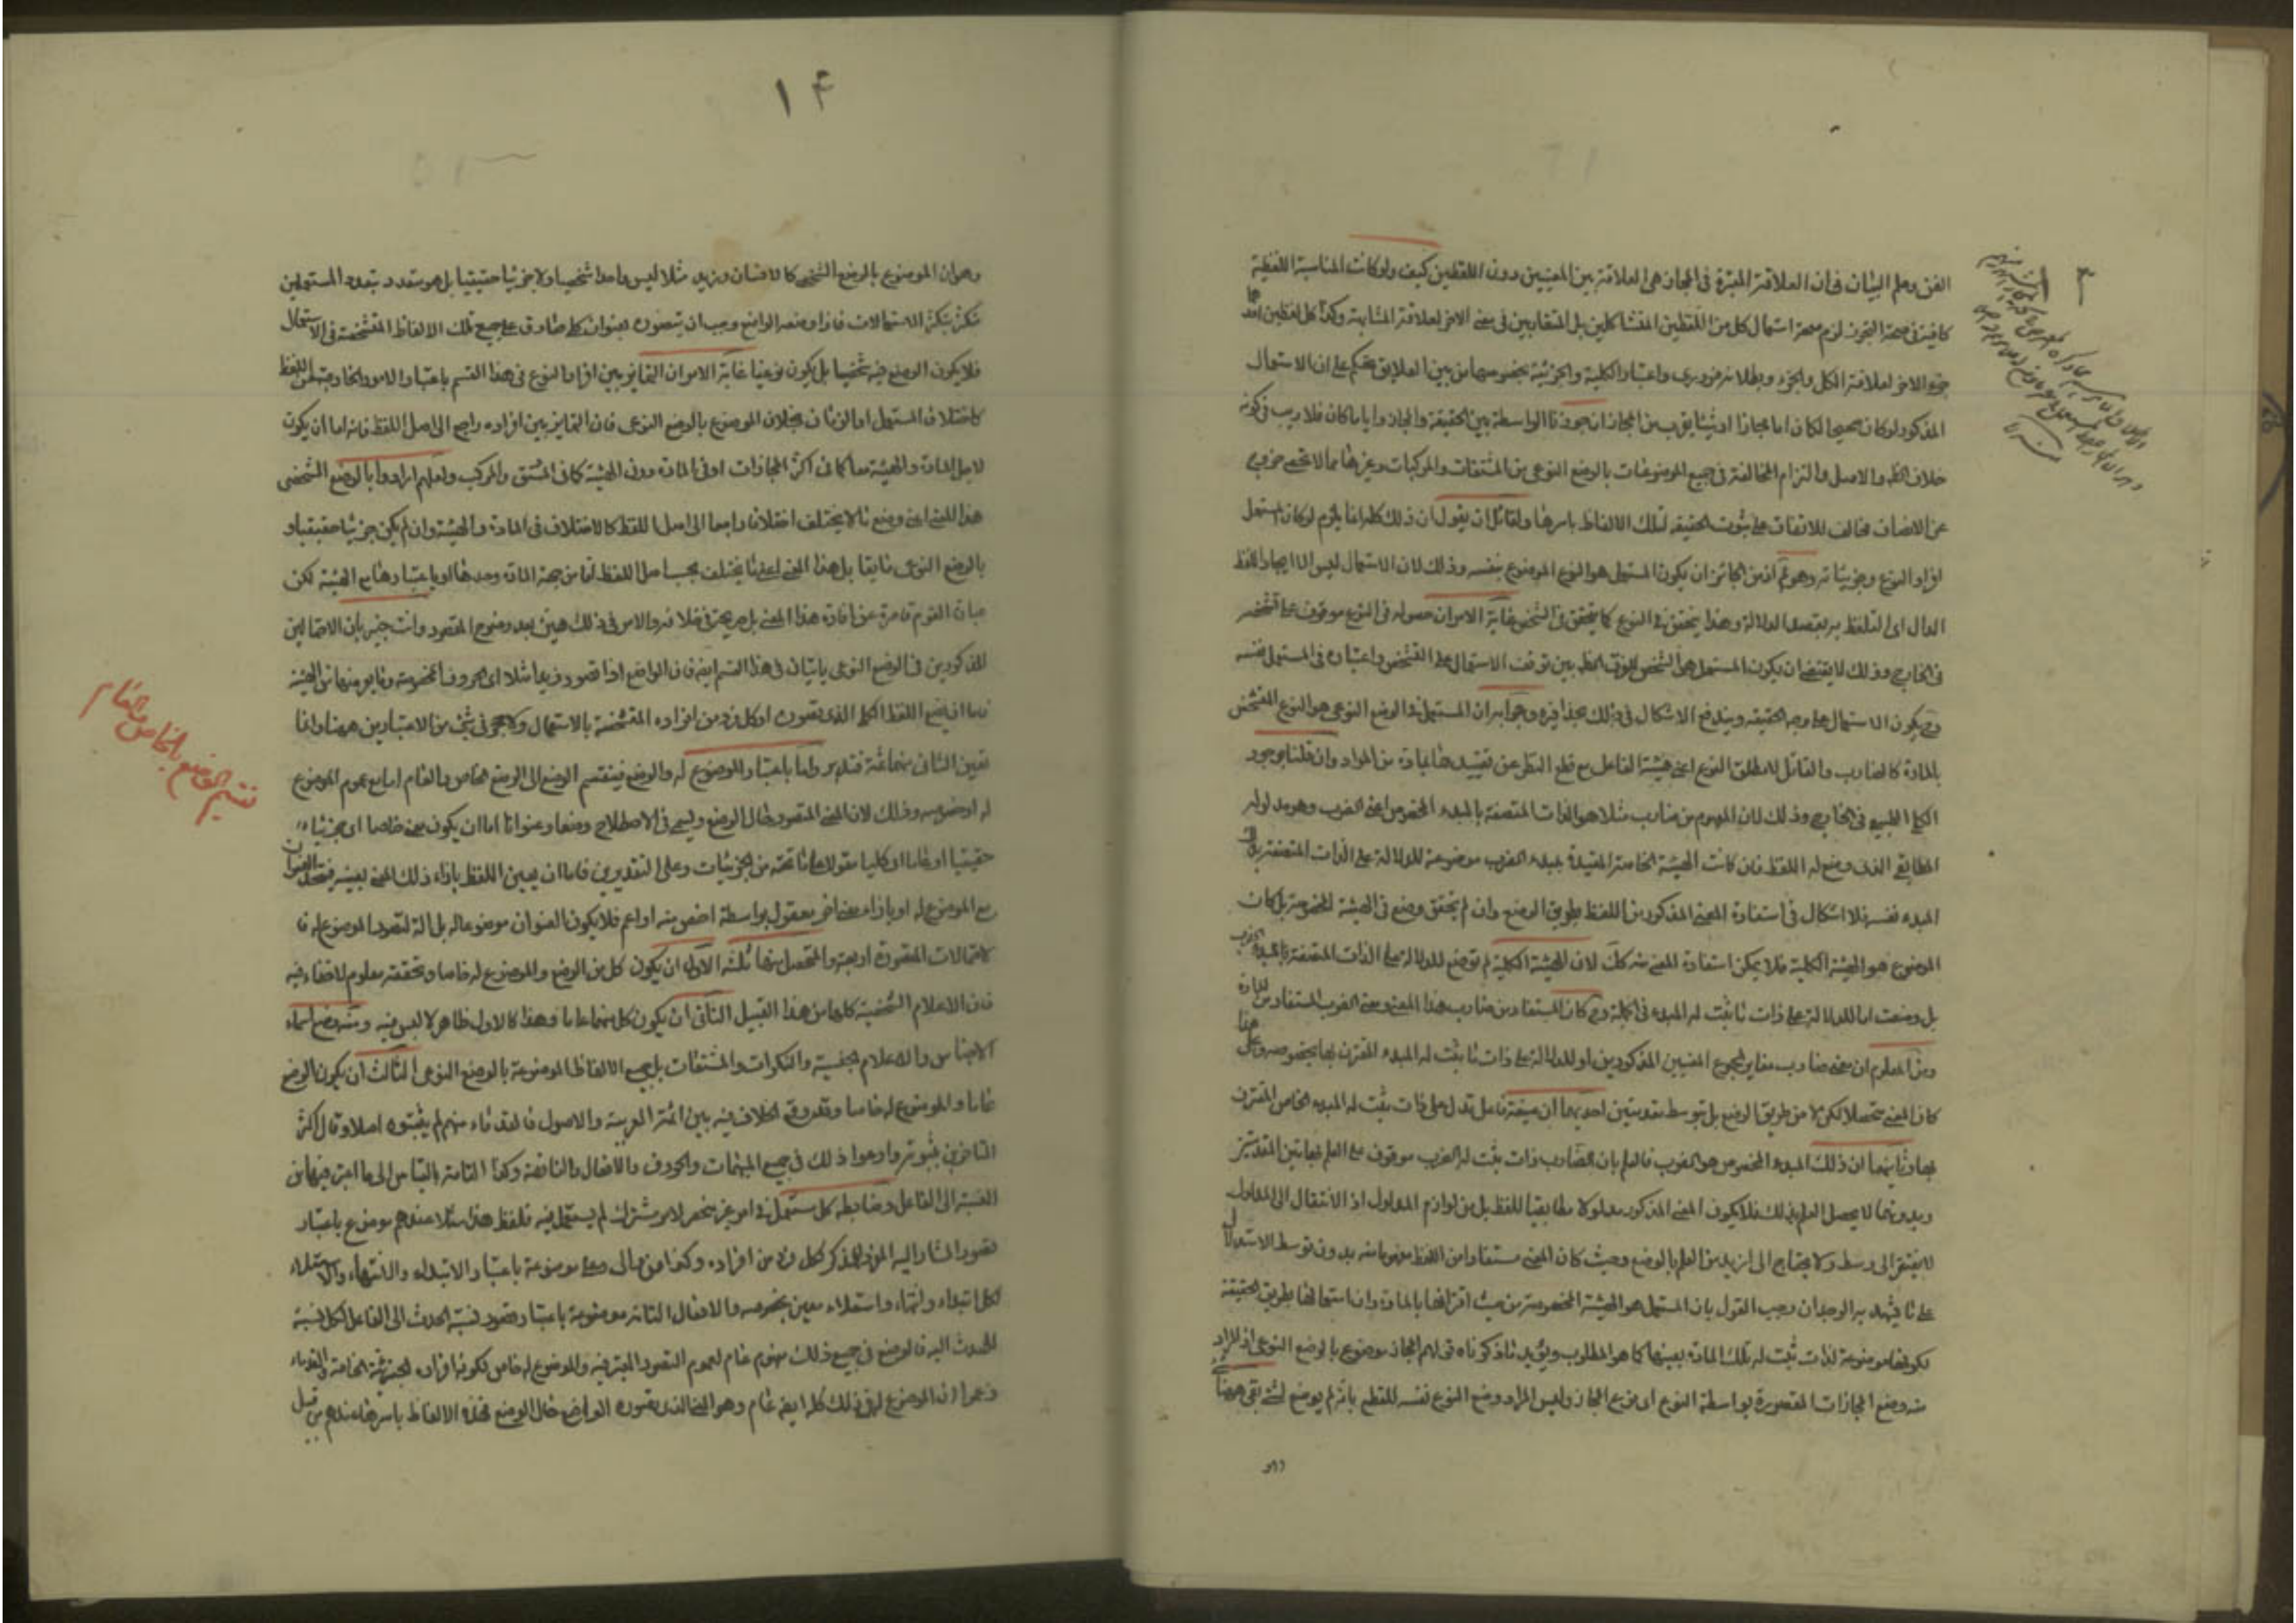 الفن وعلم البيان فى ان العلاقة المعتبرة فى المجاز هى العلاقة بين المعنيين دون اللفظين كيف ولو كانت المناسبة اللفظية
كافية فى صحة التجوز لزم صحة استعمال كل من اللفظين المتشاكلين بل المتقاربين فى معنى الاخر لعلاقة المشابهة وكذا كل لفظين احدهما
جزء الاخر لعلاقة الكل والجزء وبطلانه ضرورى واعتبار الكلية والجزئية بخصوصهما من بين العلايق تحكم على ان الاستعمال
المذكور لو كان صحيحا لكان اما مجازا او شيئا يقرب من المجاز ان جوزنا الواسطة بين الحقيقة والمجاز واياما كان فلا ريب فى كونه
خلاف الظ والاصل والتزام المخالفة فى جميع الموضوعات بالوضع النوعى من المشتقات والمركبات وغيرها مما لا تحصى خروج
عن الانصاف مخالف للاتفاق على ثبوت الحقيقة لتلك الالفاظ باسرها ولقائل ان يقول ان ذلك كله انما يلزم لو كان المستعمل
افراد النوع وجزئياته وهو مم اذ من الجائز ان يكون المستعمل هو النوع الموضوع بنفسه وذلك لان الاستعمال ليس الا ايجاد اللفظ
الدال اى التلفظ به بقصد الدلالة وهذا يتحقق فى النوع كما يتحقق فى الشخص غاية الامر ان حصوله فى النوع موقوف على تشخصه
فى الخارج وذلك لا يقتضى ان يكون المستعمل هو الشخص للفرق الظ بين توقف الاستعمال على التشخص واعتباره فى المستعمل نفسه
وح يكون الاستعمال على وجه الحقيقة ويندفع الاشكال فى ذلك بحذافيره وجوابه ان المستعمل فى الوضع النوعى هو النوع المتشخص
بالمادة كالضارب والقاتل لا مطلق النوع اعنى هيئة الفاعل مع قطع النظر عن تقييدها بمادة من المواد وان قلنا بوجود
الكلى الطبيعى فى الخارج وذلك لان المفهوم من ضارب مثلا هو الذات المتصفة بالمبدء المخصوص اعنى الضرب وهو مدلوله
المطابقى الذى وضع له اللفظ فان كانت الهيئة الخاصة المقيدة بمبدء الضرب موضوعة للدلالة على الذات المتصفة بذلك
المبدء نفسه فلا اشكال فى استفادة المعنى المذكور من اللفظ بطريق الوضع وان لم يتحقق وضع فى الهيئة المخصوصة بل كان
الموضوع هو الهيئة الكلية فلا يمكن استفادة المعنى منه كك لان الهيئة الكلية لم توضع للدلالة على الذات المتصفة بالمبدء الضرب
بل وضعت اما للدلالة على ذات ما ثبت له المبدء فى الجملة وح كان المستفاد من ضارب هذا المعنى ومعنى الضرب المستفاد من المادة
ومن المعلوم ان معنى ضارب مغاير لمجموع المعنيين المذكورين او للدلالة على ذات ما ثبت له المبدء المقترن بها بخصوصه وعلى هذا
كان المعنى متحصلا لكن لا من طريق الوضع بل بتوسط مقدمتين احديهما ان صيغة فاعل تدل على ذات ثبت له المبدء الخاص المقترن
بها وثانيهما ان ذلك المبدء المخصوص هو الضرب فالعلم بان الضارب ذات ثبت له الضرب موقوف على العلم بهاتين المقدمتين
وبدونهما لا يحصل العلم بذلك فلا يكون المعنى المذكور مدلولا مطابقيا للفظ بل من لوازم المدلول اذ الانتقال الى المدلول
لا يفتقر الى وسط ولا يحتاج الى ازيد من العلم بالوضع وحيث كان المعنى مستفادا من اللفظ مفهوما منه بدون توسط الاستدلال
على ما يشهد به الوجدان وجب القول بان المستعمل هو الهيئة المخصوصة من حيث اقترانها بالمادة وان استعمالها بطريق الحقيقة
لكونها موضوعة لذات ثبت له تلك المادة بعينها كما هو المطلوب ويؤيد ما ذكرناه قولهم المجاز موضوع بالوضع النوعى اذ المراد
منه وضع المجازات المتصورة بواسطة النوع اى نوع المجاز وليس المراد وضع النوع نفسه للقطع بانه لم يوضع لشئ بقى ههنا
١٤
وهو ان الموضوع بالوضع الشخصى كالانسان وزيد مثلا ليس واحدا شخصيا ولا جزئيا حقيقيا بل هو متعدد بتعدد المستعملين
متكثر بتكثر الاستعمالات فاذا وضعه الواضع وجب ان يتصوره بعنوان كلى صادق على جميع تلك الالفاظ المتشخصة فى الاستعمال
فلا يكون الوضع فيه شخصيا بل يكون نوعيا غاية الامر ان التمايز بين افراد النوع فى هذا القسم باعتبار الامور الخارجة عن اللفظ
كاختلاف المستعمل او الزمان بخلاف الموضوع بالوضع النوعى فان التمايز بين افراده راجع الى اصل اللفظ فانه اما ان يكون
لاصل المادة والهيئة معا كما فى اكثر المجازات او فى المادة دون الهيئة كما فى المشتق والمركب ولعلهم ارادوا بالوضع الشخصى
هذا المعنى اعنى وضع ما لا يختلف اختلافا راجعا الى اصل اللفظ كالاختلاف فى المادة والهيئة وان لم يكن جزئيا حقيقيا و
بالوضع النوعى ما يقابل هذا المعنى اعنى ما يختلف بحسب اصل اللفظ اما من جهة المادة وحدها او باعتبارها مع الهيئة لكن
عبارة القوم قاصرة عن افادة هذا المعنى بل صريحة فى خلافه والامر فى ذلك هين بعد وضوح المقصود وانت خبير بان الاحتمالين
المذكورين فى الوضع النوعى ياتيان فى هذا القسم ايضا فان الواضع اذا تصور زيدا مثلا اى الحروف المخصوصة وما يعرضها من الهيئة
فاما ان يضع اللفظ الكلى الذى تصوره او كل فرد من افراده المتشخصة بالاستعمال ولا حجر فى شئ من الاعتبارين ههنا وانما
تعين الثانى منهما ثمة فتدبر واما باعتبار الموضوع له والوضع فينقسم الوضع الى الوضع الخاص والعام اما مع عموم الموضوع
له او خصوصه وذلك لان المعنى المتصور حال الوضع ويسمى فى الاصطلاح وضعا وعنوانا اما ان يكون معنى خاصا اى جزئيا
حقيقيا او عاما اى كليا مقولا على ما تحته من الجزئيات وعلى التقديرين فاما ان يعين اللفظ بازاء ذلك المعنى بعينه فيتحد العنوان
مع الموضوع له او بازاء معنى اخر معقول بواسطة اخص منه او اعم فلا يكون العنوان موضوعا له بل الة لتصور الموضوع له فا
لاحتمالات المتصورة اربعة والمتحصل منها ثلثة الاول ان يكون كل من الوضع والموضوع له خاصا وتحققه معلوم لا خفاء فيه
فان الاعلام الشخصية كلها من هذا القبيل الثانى ان يكون كل منهما عاما وهذا كالاول ظاهر لا لبس فيه ومنه وضع اسماء
الاجناس والاعلام الجنسية والنكرات والمشتقات بل جميع الالفاظ الموضوعة بالوضع النوعى الثالث ان يكون الوضع
عاما والموضوع له خاصا وقد وقع الخلاف فيه بين ائمة العربية والاصول فالقدماء منهم لم يثبتوه اصلا وقال اكثر
المتاخرين بثبوته وادعوا ذلك فى جميع المبهمات والحروف والافعال والناقصة وكذا التامة بالقياس الى ما اعتبر فيها من
النسبة الى الفاعل وضابطه كل مستعمل فى امور غير منحصر لامر مشترك لم يستعمل فيه فلفظ هذا مثلا عندهم موضوع باعتبار
تصور المشار اليه المفرد المذكر لكل فرد من افراده وكذا من والى وعلى موضوعة باعتبار الابتداء والانتهاء والاستعلاء
لكل ابتداء وانتهاء واستعلاء معين بخصوصه والافعال التامة موضوعة باعتبار تصور نسبة الحدث الى الفاعل لكل نسبة
للحدث اليه فالوضع فى جميع ذلك مفهوم عام لعموم التصور المعتبر فيه والموضوع له خاص لكونه افراده الجزئية الخاصة والقدماء
زعموا ان الموضوع له فى ذلك كله ايضا عام وهو المعنى الذى يتصوره الواضع حال الوضع فهذه الالفاظ باسرها عندهم من قبيل
تقسيم الوضع بالخاص والعام